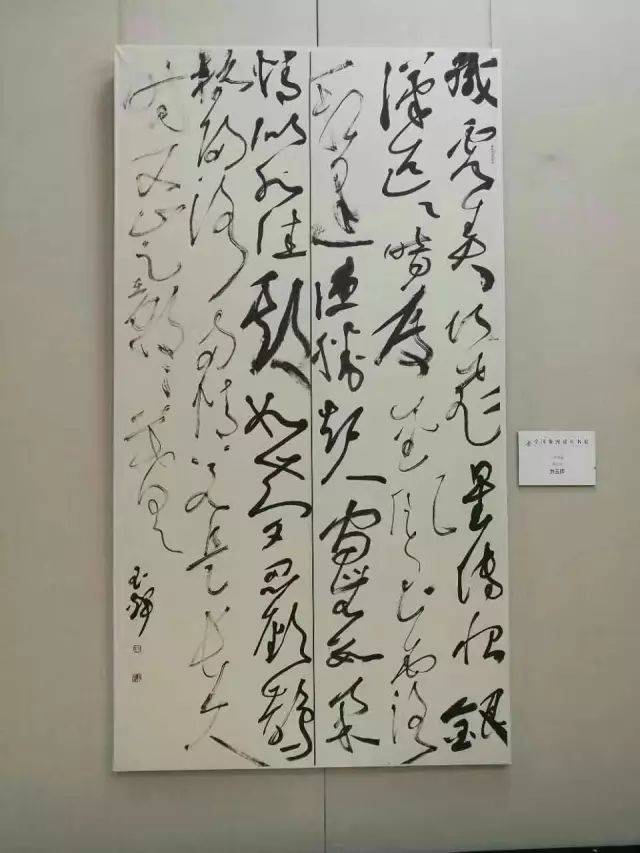 纖雲弄巧飛星傳恨銀
漢迢迢暗度金風玉露
一相逢便勝却人間無數柔
情似水佳期如夢忍顧鵲
橋歸路兩情若是長久
時又豈在朝朝暮暮